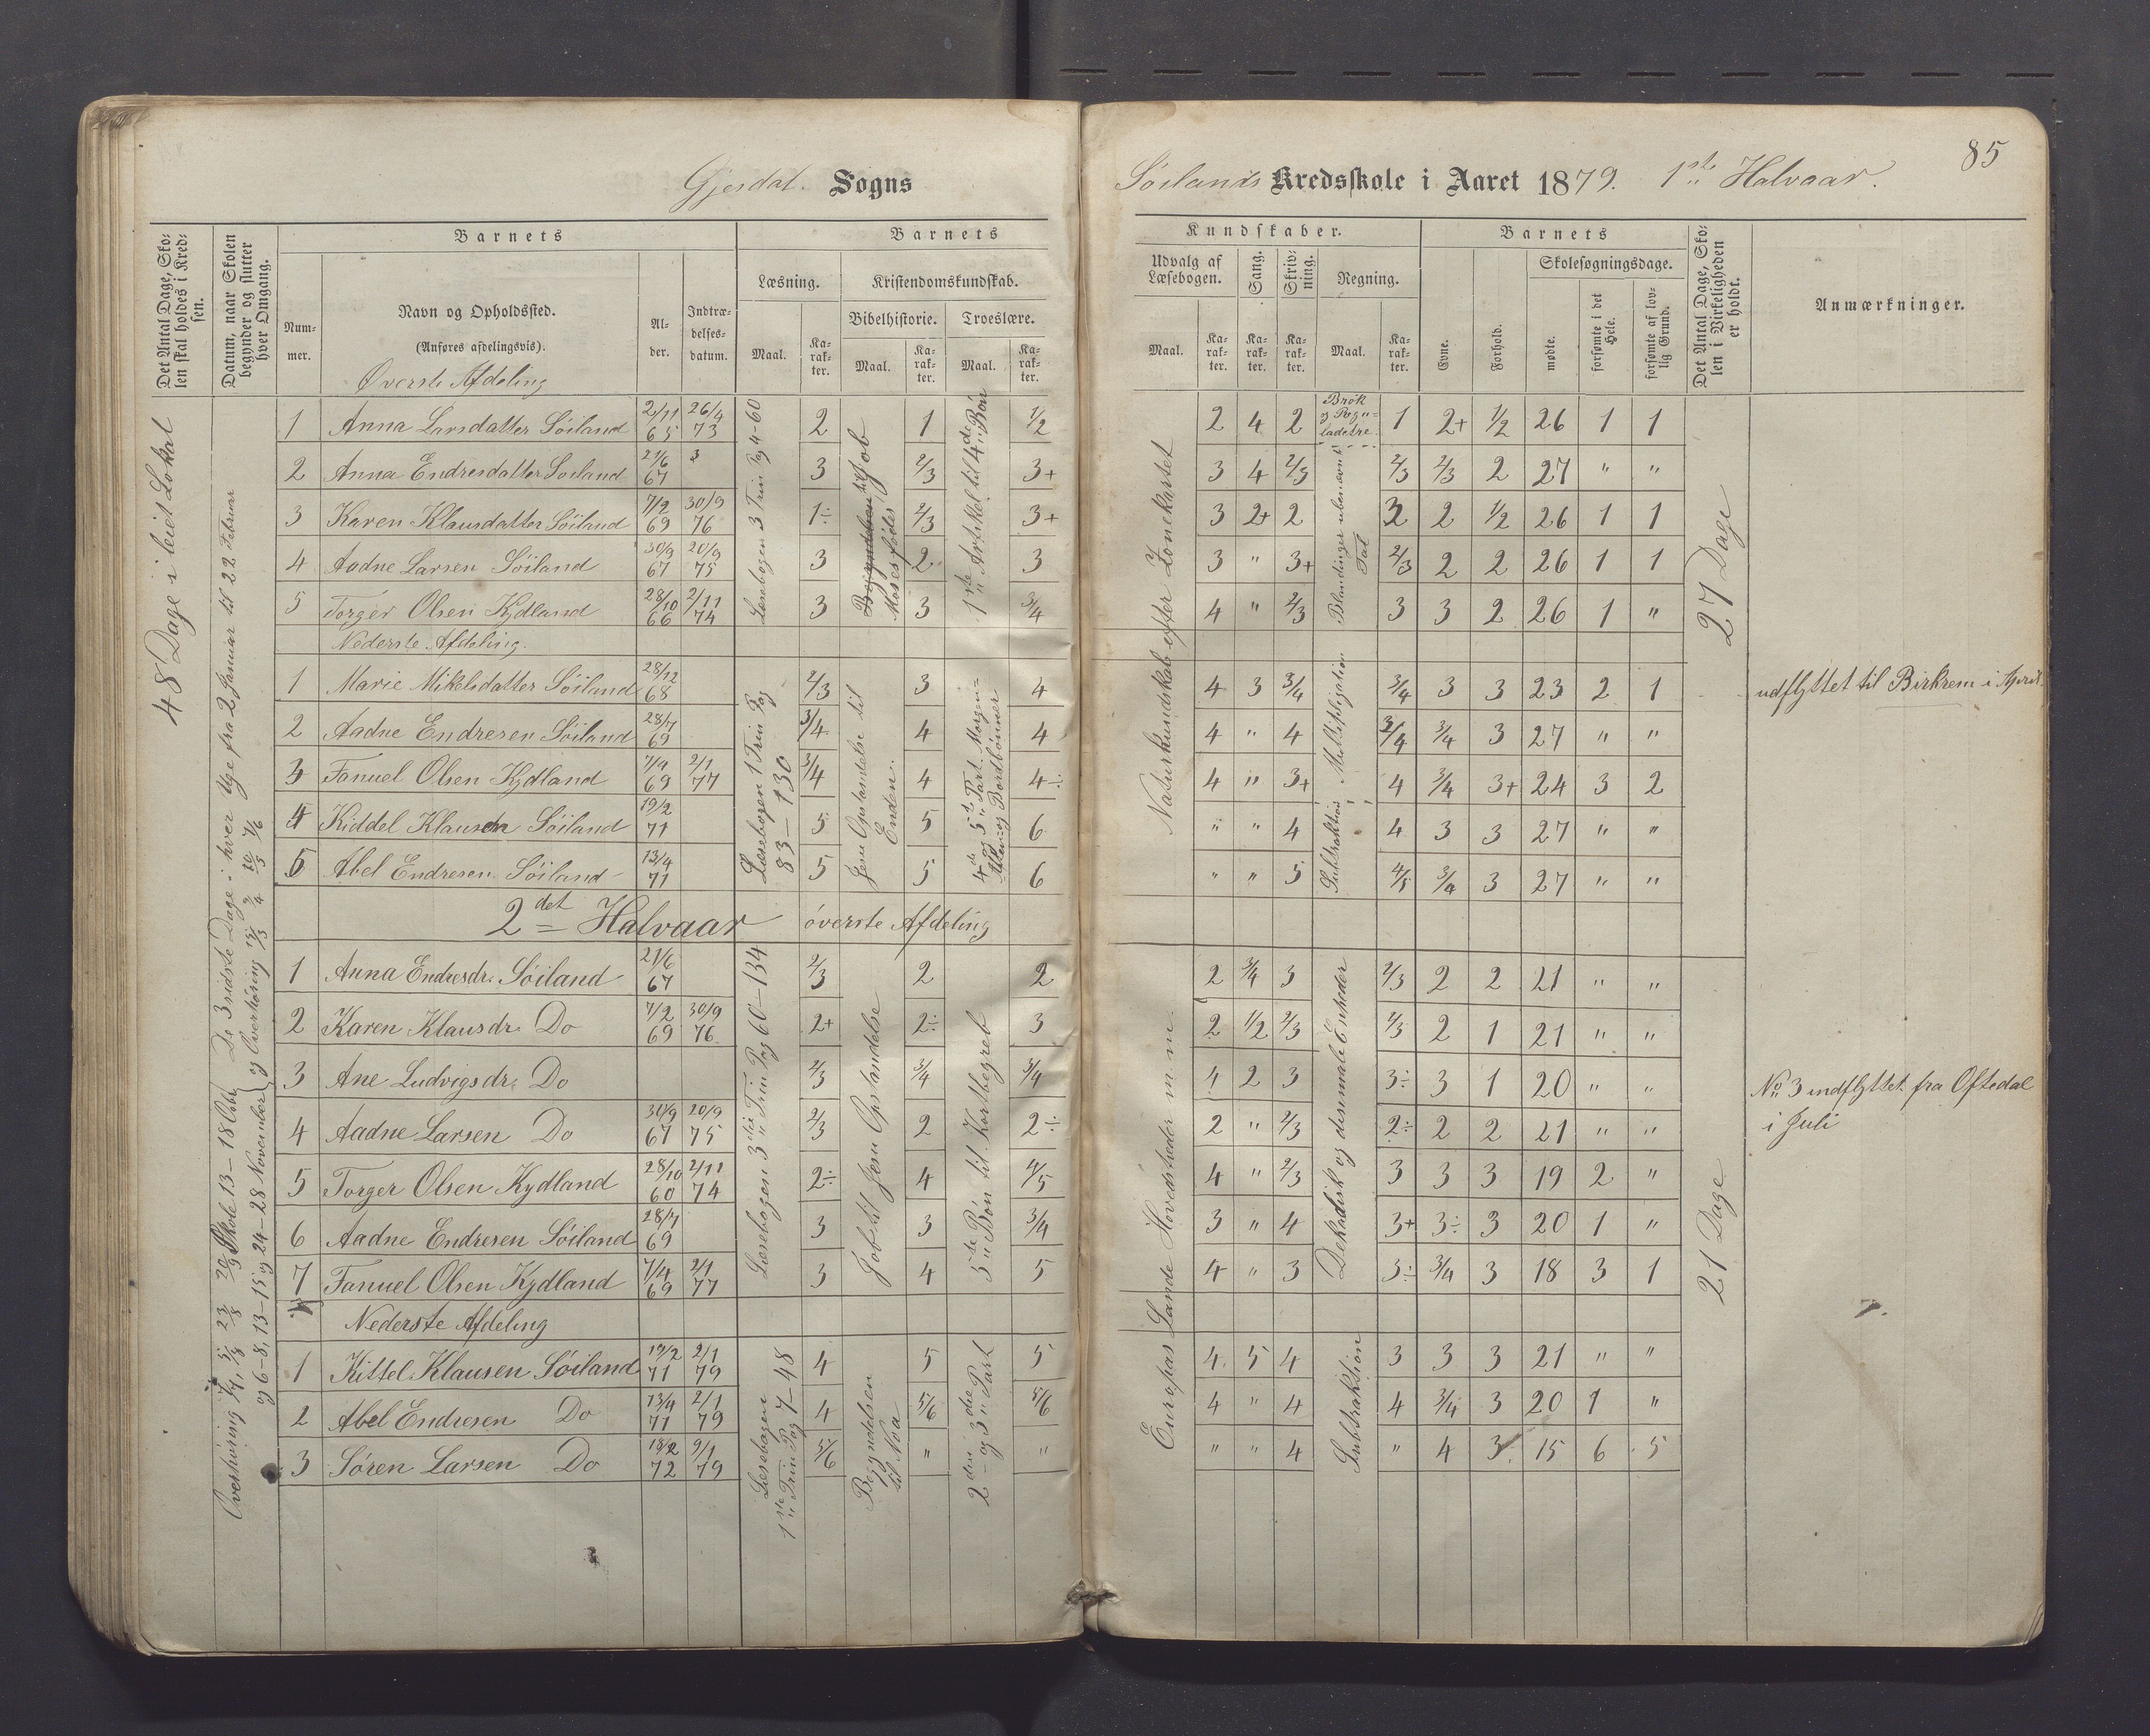 85
Gjesdal. Sogns
Søilands Kredsskole i Aaret 1879. 1ste Halvaar.
Det Antal Dage, Sko-
len skal holdes i Kred-
sen.
Datum, naar Skolen
begynder og slutter
hver Omgang.
Barnets
Num-
mer.
Navn og Opholdssted.
(Anføres afdelingsvis).
Al-
der.
Indtræ-
delses-
datum.
Barnets
Læsning.
Maal.
Ka-
rak-
ter.
Kristendomskundskab.
Bibelhistorie.
Maal.
Ka-
rak-
ter.
Troeslære.
Maal.
Ka-
rak-
ter.
Kundskaber.
Udvalg af
Læsebogen.
Maal.
Ka-
rak-
ter.
Sang.
Ka-
rak-
ter.
Skriv-
ning.
Ka-
rak-
ter.
Regning.
Maal.
Ka-
rak-
ter.
Barnets
Evne.
Forhold.
Skolesøgningsdage.
mødte.
forsømte i det
Hele.
forsømte af lov-
lig Grund.
Det Antal Dage, Sko-
len i Virkeligheden
er holdt.
Anmærkninger.
48 Dage i leiet Lokal
De 3 sidste Dage i hver Uge fra 2 Januar til 22 Februar
Øverste Afdeling
Læsebogen 3 Trin Pag 4-60
Moses fødes
1ste Artikel til 4de Bøn
Naturkundskab efter Zonekartet
Brøk
Blandinger ubenævnt
Tal
27 Dage
1 Anna Larsdatter Søiland 2/11 65 26/4 73 2 1 1/2 2 4 2 1 2+ 1/2 26 1 1
2 Anna Endresdatter Søiland 21/6 67 3 2/3 3+ 3 4 2/3 2/3 2/3 2 27 " "
3 Karen Klausdatter Søiland 7/2 69 30/9 76 1÷ 2/3 3+ 3 2+ 2 2 2 1/2 26 1 1
4 Aadne Larsen Søiland 30/9 67 20/9 75 3 2 3 3 " 3+ 2/3 2 2 26 1 1
5 Torger Olsen Kydland 28/10 66 2/11 74 3 3 3/4 4 " 2/3 3 3 2 26 1 "
Nederste Afdeling.
Læsebogen 1 Trin Pag
83-130
Jesu Opstandelse til
Enden.
4de og 5te Part. Morgen-
Aften og Bordbønner
Multipligation
Subtraktion
1 Marie Mikelsdatter Søiland 28/12 68 2/3 3 4 4 3 3/4 3/4 3 3 23 2 1 udflyttet til Birkrem i April
2 Aadne Endresen Søiland 28/7 69 3/4 4 4 4 " 4 3/4 3/4 3 27 " "
3 Fanuel Olsen Kydland 7/4 69 2/1 77 3/4 4 4÷ 4 " 3+ 4 3/4 3+ 24 3 2
4 Kiddel Klausen Søiland 19/2 71 5 5 6 " " 4 4 3 3 27 " "
5 Abel Endresen Søiland 13/4 71 5 5 6 " " 5 4/5 3/4 3 27 " "
2det Halvaar øverste Afdeling
Læsebogen 3die Trin Pag 60-134
Job til Jesu Opstandelse
5te Bøn til Kortbegreb
Europas Lande Hovedstæder m m.
Dekadisk og desimale Enheder
21 Dage
1 Anna Endresdr. Søiland 21/6 67 2/3 2 2 2 3/4 3 2/3 2 2 21 " "
2 Karen Klausdr. Do 7/2 69 30/9 76 2+ 2÷ 3 2 1/2 2/3 2/3 2 1 21 " "
3 Ane Ludvigsdr. Do 2/3 3/4 3/4 4 2 3 3÷ 3 1 20 " " No 3 indflyttet fra Oftedal
i Juli
4 Aadne Larsen Do 30/9 67 20/9 75 2/3 2 2÷ 2 " 2/3 2÷ 2 2 21 " "
5 Torger Olsen Kydland 28/10 60 2/11 74 2÷ 4 4/5 4 " 2/3 3 3 3 19 2 "
6 Aadne Endresen Søiland 28/7 69 3 3 3/4 3 " 4 3+ 3÷ 3 20 1 "
7 Fanuel Olsen Kydland 7/4 69 2/1 77 3 4 5 4 " 3 3÷ 3/4 3 18 3 1
Nederste Afdeling
Læsebogen
1ste Trin Pag 7-48
Begyndelsen
til Noa
2den og 3die Part
Subtraktion
1 Kittel Klausen Søiland 19/2 71 2/1 79 4 5 5 4 5 4 3 3 3 21 " "
2 Abel Endresen Do 13/4 71 2/1 79 4 5/6 5/6 4 " 4 4 3/4 3 20 1 "
3 Søren Larsen Do 18/2 72 9/1 79 5/6 " " " " 4 " 4 3 15 6 5